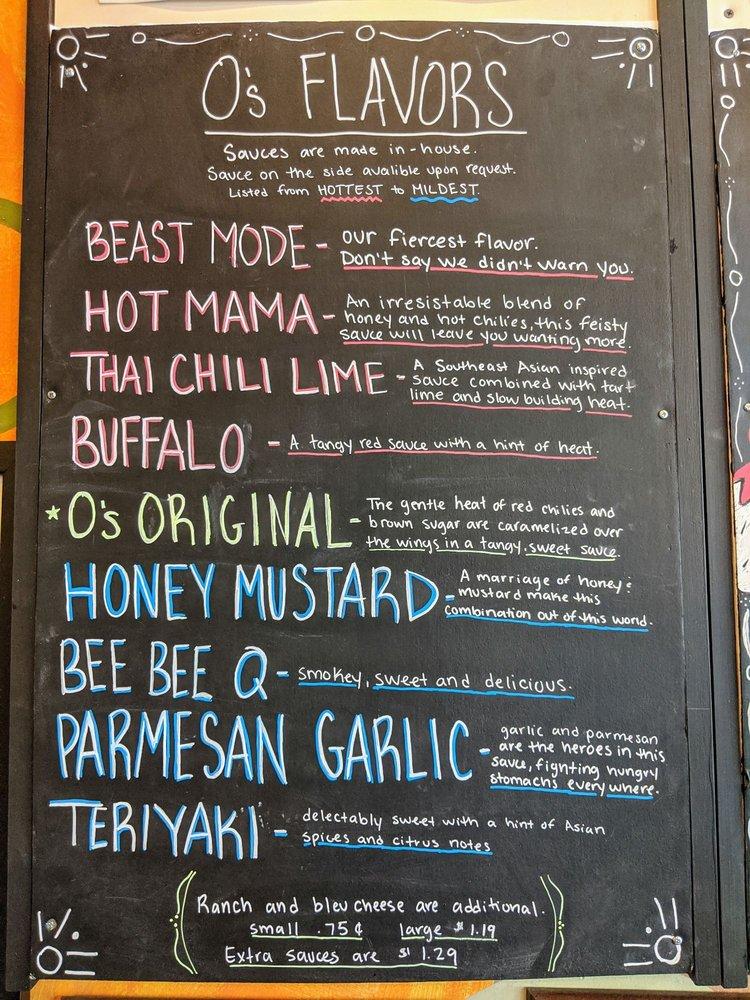 O's FLAVORS
Sauces are made in-house.
Sauce on the side avalible upon request.
Listed from HOTTEST to MILDEST.
BEAST MODE - our fiercest flavor.
Don't say we didn't warn you.
HOT MAMA - An irresistable blend of
honey and hot chilies, this feisty
sauce will leave you wanting more.
THAI CHILI LIME - A Southeast Asian inspired
sauce combined with tart
lime and slow building heat.
BUFFALO - A tangy red sauce with a hint of heat.
*O's ORIGINAL - The gentle heat of red chilies and
brown sugar are caramelized over
the wings in a tangy, sweet sauce.
HONEY MUSTARD - A marriage of honey &
mustard make this
combination out of this world.
BEE BEE Q - smokey, sweet and delicious.
PARMESAN GARLIC - garlic and parmesan
are the heroes in this
sauce, fighting hungry
stomachs every where.
TERIYAKI - delectably sweet with a hint of Asian
spices and citrus notes
Ranch and bleu cheese are additional.
small .75¢ large $1.19
Extra sauces are $1.29